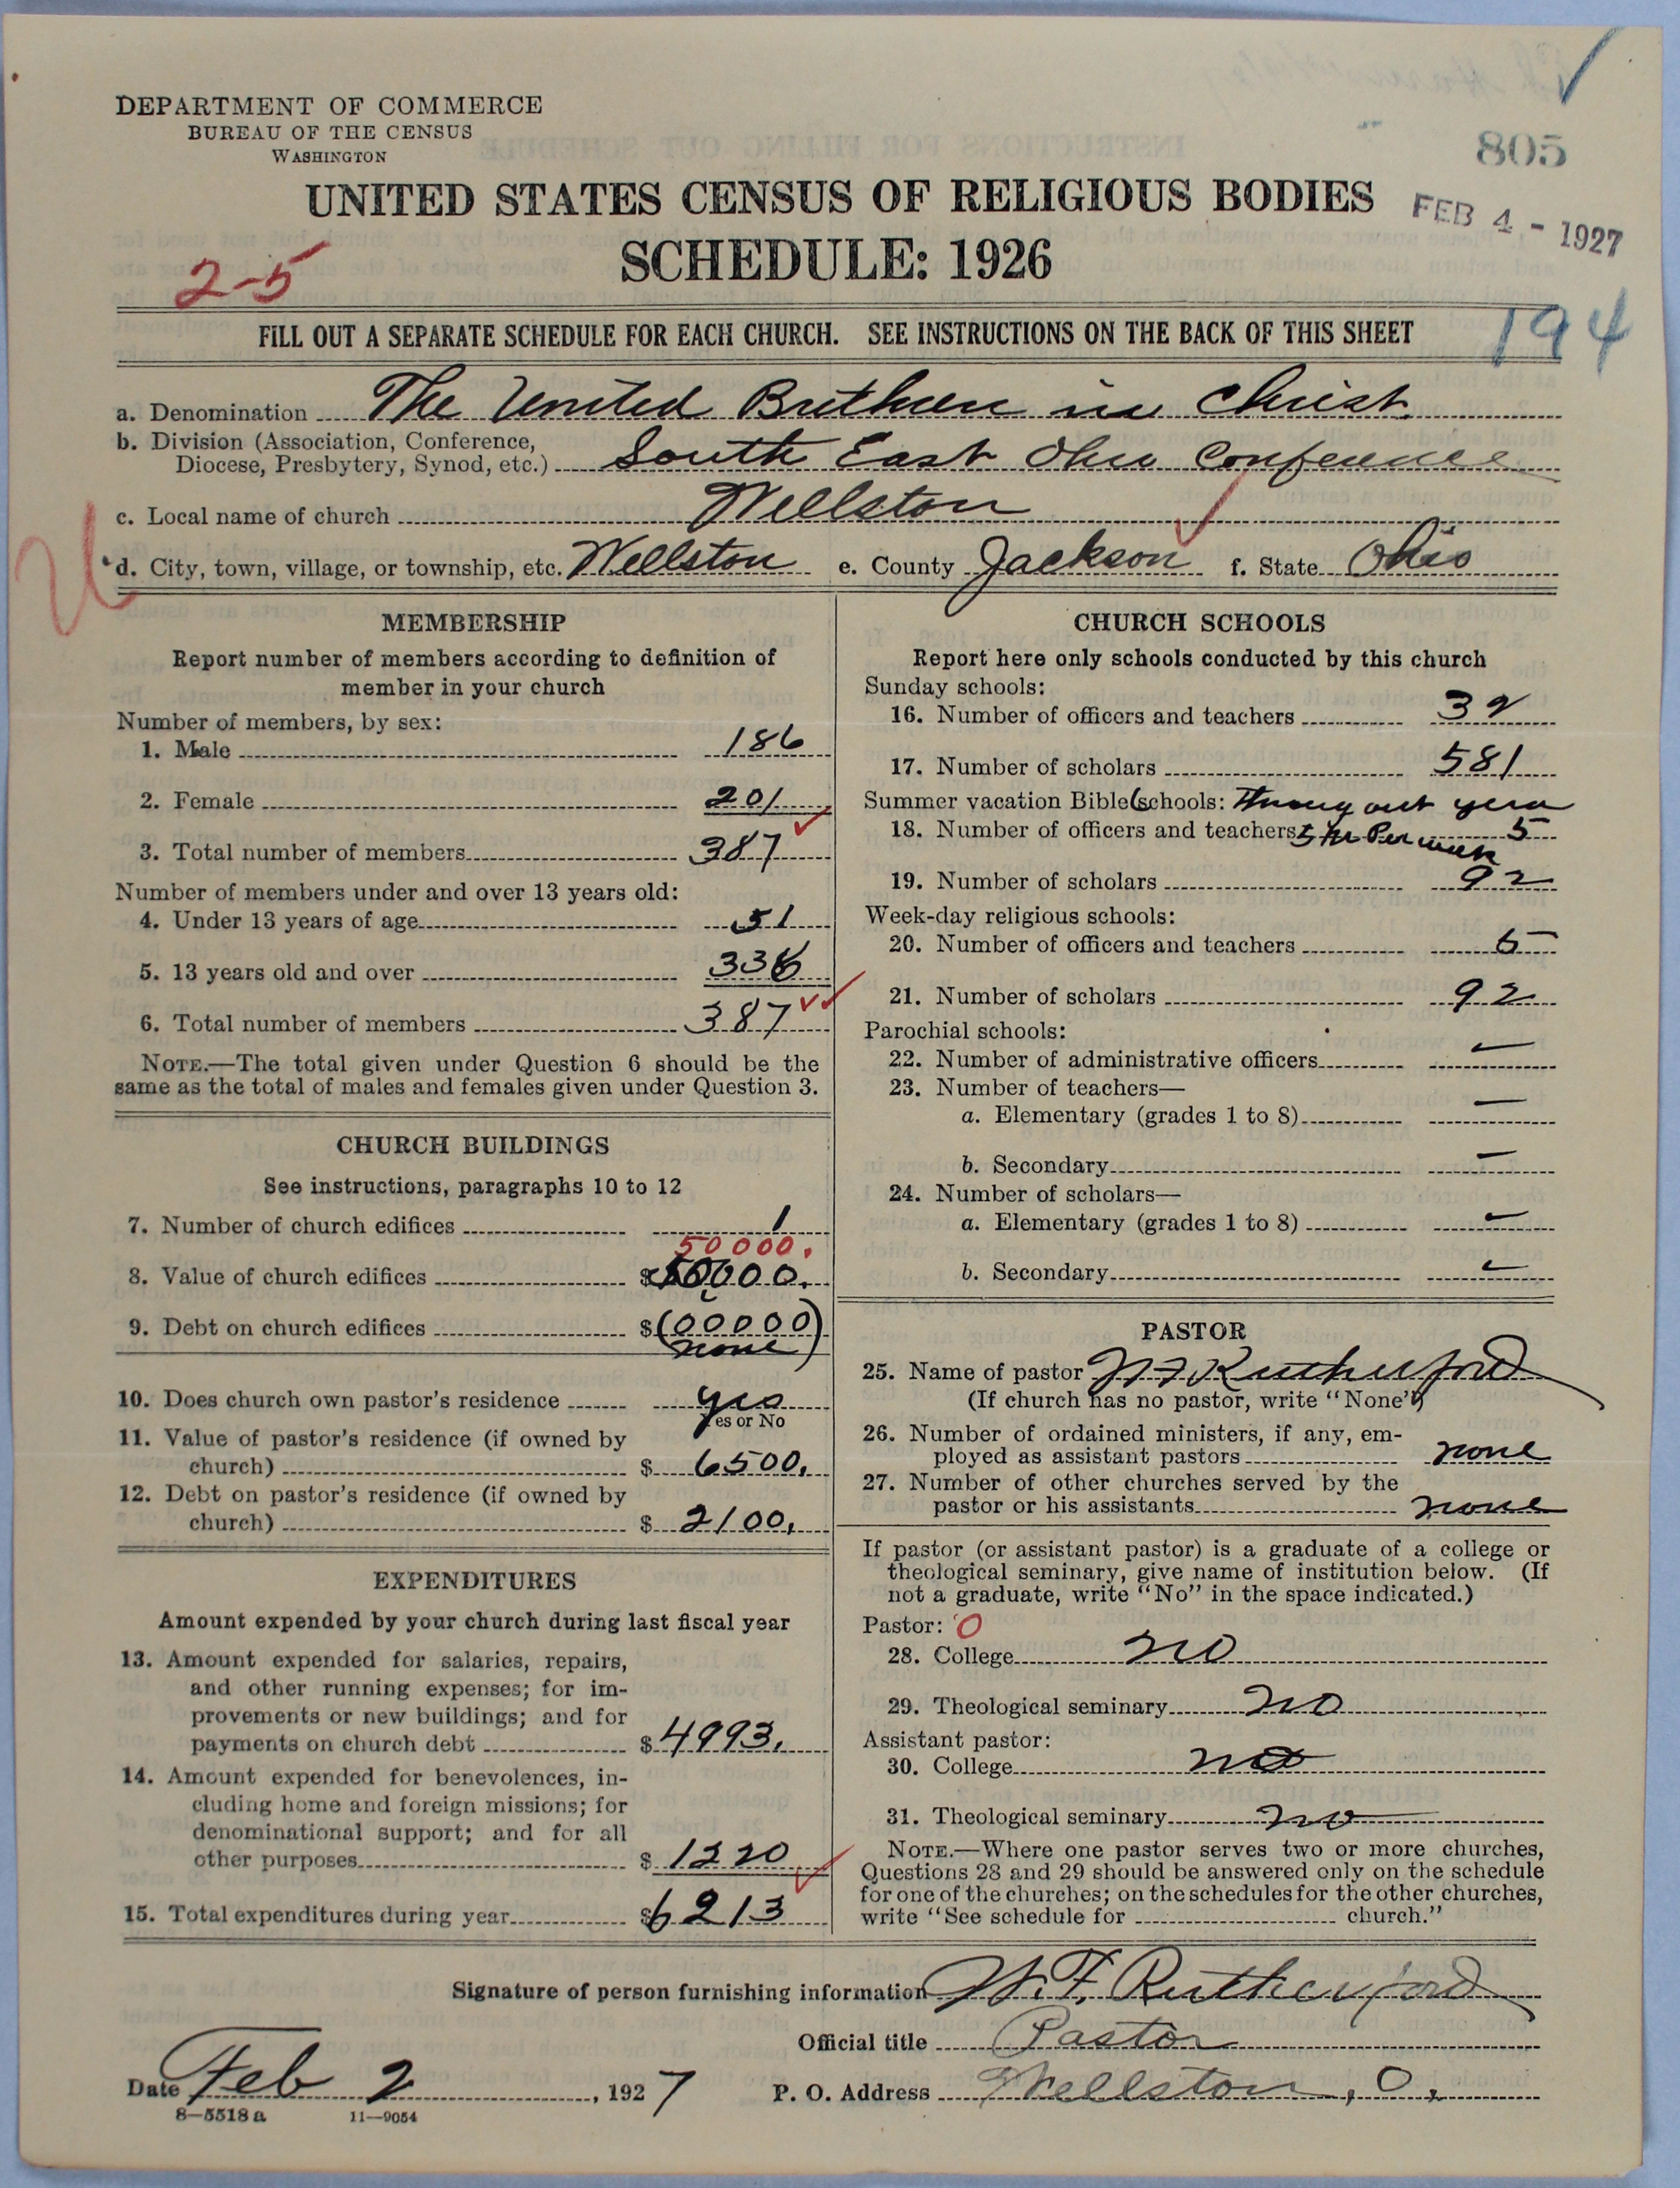 DEPARTMENT OF COMMERCE
BUREAU OF THE CENSUS
WASHINGTON
805
UNITED STATES CENSUS OF RELIGIOUS BODIES
FEB 4 - 1927
SCHEDULE: 1926
2-5
FILL OUT A SEPARATE SCHEDULE FOR EACH CHURCH. SEE INSTRUCTIONS ON THE BACK OF THIS SHEET
194
a. Denomination The United Brethren in Christ
b. Division (Association, Conference,
Diocese, Presbytery, Synod, etc.) South East Ohio Conference
c. Local name of church Wellston
d. City, town, village, or township, etc. Wellston e. County Jackson f. State Ohio
MEMBERSHIP
Report number of members according to definition of
member in your church
Number of members, by sex:
1. Male 186
2. Female 201
3. Total number of members 387
Number of members under and over 13 years old:
4. Under 13 years of age 51
5. 13 years old and over 336
6. Total number of members 387
NOTE.—The total given under Question 6 should be the
same as the total of males and females given under Question 3.
CHURCH BUILDINGS
See instructions, paragraphs 10 to 12
7. Number of church edifices 1
50000.
8. Value of church edifices $50000.
9. Debt on church edifices $(00000)
none
10. Does church own pastor's residence yes
Yes or No
11. Value of pastor's residence (if owned by
church) $ 6500.
12. Debt on pastor's residence (if owned by
church) $ 2100.
EXPENDITURES
Amount expended by your church during last fiscal year
13. Amount expended for salaries, repairs,
and other running expenses; for im-
provements or new buildings; and for
payments on church debt $ 4993.
14. Amount expended for benevolences, in-
cluding home and foreign missions; for
denominational support; and for all
other purposes $ 1220
15. Total expenditures during year $6213
CHURCH SCHOOLS
Report here only schools conducted by this church
Sunday schools:
16. Number of officers and teachers 32
17. Number of scholars 581
Summer vacation Bible schools: Throug out year
18. Number of officers and teachers 5 hr Per week 5
19. Number of scholars 92
Week-day religious schools:
20. Number of officers and teachers 5
21. Number of scholars 92
Parochial schools:
22. Number of administrative officers —
23. Number of teachers—
a. Elementary (grades 1 to 8) —
b. Secondary —
24. Number of scholars—
a. Elementary (grades 1 to 8) —
b. Secondary —
PASTOR
25. Name of pastor W F Rutherford
(If church has no pastor, write "None")
26. Number of ordained ministers, if any, em-
ployed as assistant pastors none
27. Number of other churches served by the
pastor or his assistants none
If pastor (or assistant pastor) is a graduate of a college or
theological seminary, give name of institution below. (If
not a graduate, write "No" in the space indicated.)
Pastor: 0
28. College no
29. Theological seminary no
Assistant pastor:
30. College no
31. Theological seminary no
NOTE.—Where one pastor serves two or more churches,
Questions 28 and 29 should be answered only on the schedule
for one of the churches; on the schedules for the other churches,
write "See schedule for church."
Signature of person furnishing information W. F. Rutherford
Official title Pastor
Date Feb 2, 1927 P. O. Address Wellston, O.
8—5518 a 11—9054